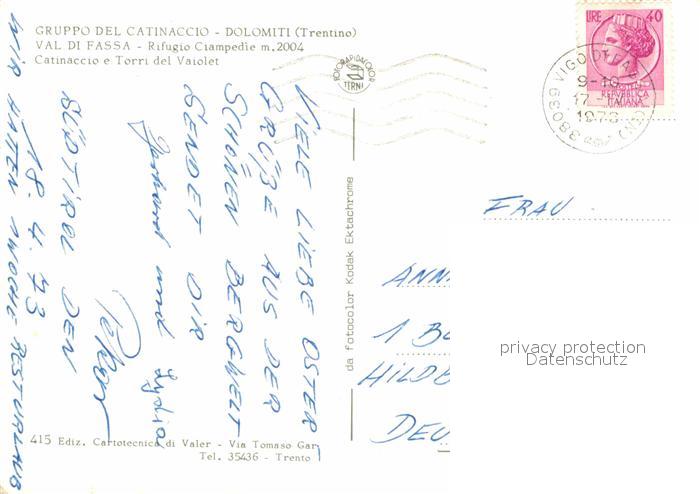 GRUPPO DEL CATINACCIO - DOLOMITI (Trentino)
VAL DI FASSA - Rifugio Ciampedie m.2004
Catinaccio e Torri del Vaiolet
LIRE 40
REPUBBLICA
ITALIANA
38039 VIGO DI FA
9-10
17-
1973
(TN)
TERNI
VIELE LIEBE OSTER
GRÜßE AUS DER
SCHÖNEN BERGWELT
SENDET DIR
und Lydia
SÜDTIROL DEN
18.4.73
WIR HATTEN 1 WOCHE RESTURLAUB
da fotocolor Kodak Ektachrome
FRAU
ANN
1 B
HILDE
DEU
privacy protection
Datenschutz
415 Ediz. Cartotecnica di Valer - Via Tomaso Gar
Tel. 35436 - Trento